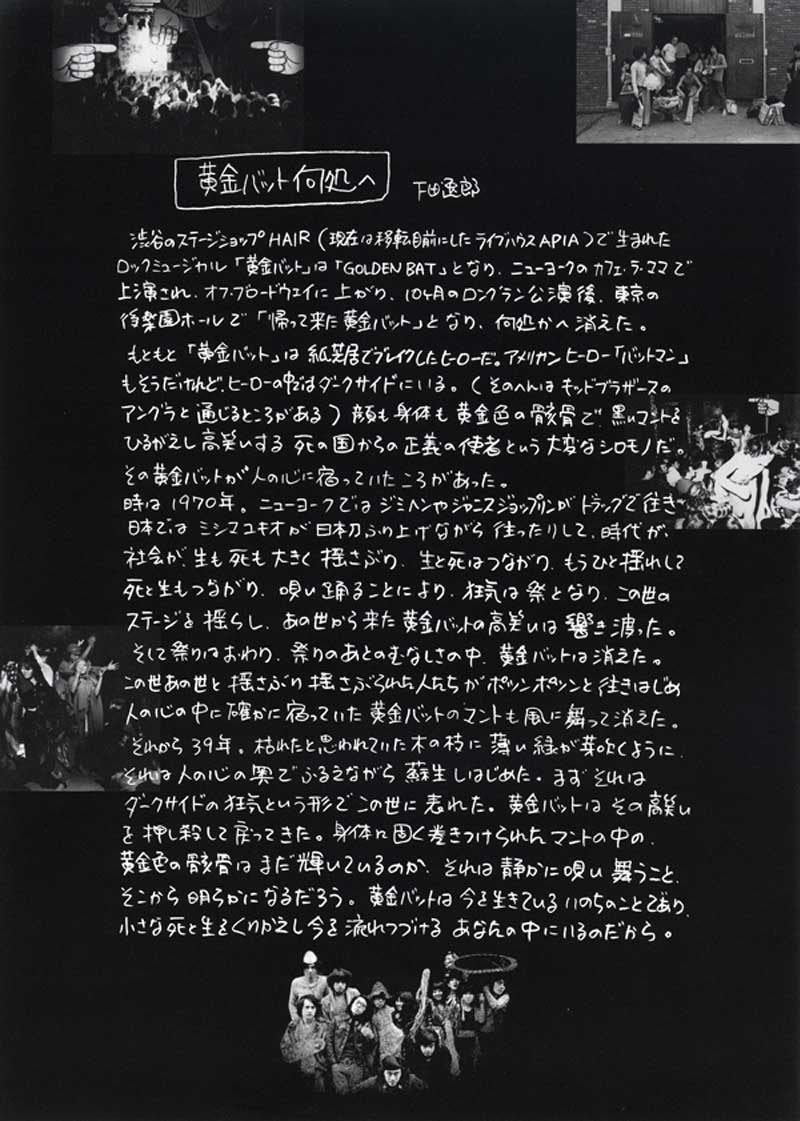 黄金バット何処へ
下田逸郎
渋谷のステージショップHAIR（現在は移転目前にしたライブハウスAPIA）で生まれた
ロックミュージカル「黄金バット」は「GOLDEN BAT」となり、ニューヨークのカフェ・ラ・ママで
上演され、オフ・ブロードウェイに上がり、10ヶ月のロングラン公演後、東京の
後楽園ホールで「帰って来た黄金バット」となり、何処かへ消えた。
もともと「黄金バット」は紙芝居でブレイクしたヒーローだ。アメリカンヒーロー「バットマン」
もそうだけれど、ヒーローの中ではダークサイドにいる。（そのへんはキッドブラザースの
アングラと通じるところがある）顔も身体も黄金色の骸骨で、黒いマントを
ひるがえし高笑いする死の国からの正義の使者という大変なシロモノだ。
その黄金バットが人の心に宿っていたころがあった。
時は1970年。ニューヨークではジミヘンやジャニスジョップリンがドラッグで往き
日本ではミシマユキオが日本刀ふり上げながら往ったりして、時代が、
社会が、生も死も大きく揺さぶり、生と死はつながり、もうひと揺れして
死と生もつながり、唄い踊ることにより、狂気は祭となり、この世の
ステージを揺らし、あの世から来た黄金バットの高笑いは響き渡った。
そして祭りはおわり、祭りのあとのむなしさの中、黄金バットは消えた。
この世あの世と揺さぶり揺さぶられた人たちがポツンポツンと往きはじめ
人の心の中に確かに宿っていた黄金バットのマントも風に舞って消えた。
それから39年。枯れたと思われていた木の枝に薄い緑が芽吹くように、
それは人の心の奥でふるえながら蘇生しはじめた。まずそれは
ダークサイドの狂気という形でこの世に表れた。黄金バットはその高笑い
を押し殺して戻ってきた。身体に固く巻きつけられたマントの中の、
黄金色の骸骨はまだ輝いているのか、それは静かに唄い舞うこと、
そこから明らかになるだろう。黄金バットは今を生きているいのちのことであり、
小さな死と生をくりかえし今を流れつづけるあなたの中にいるのだから。